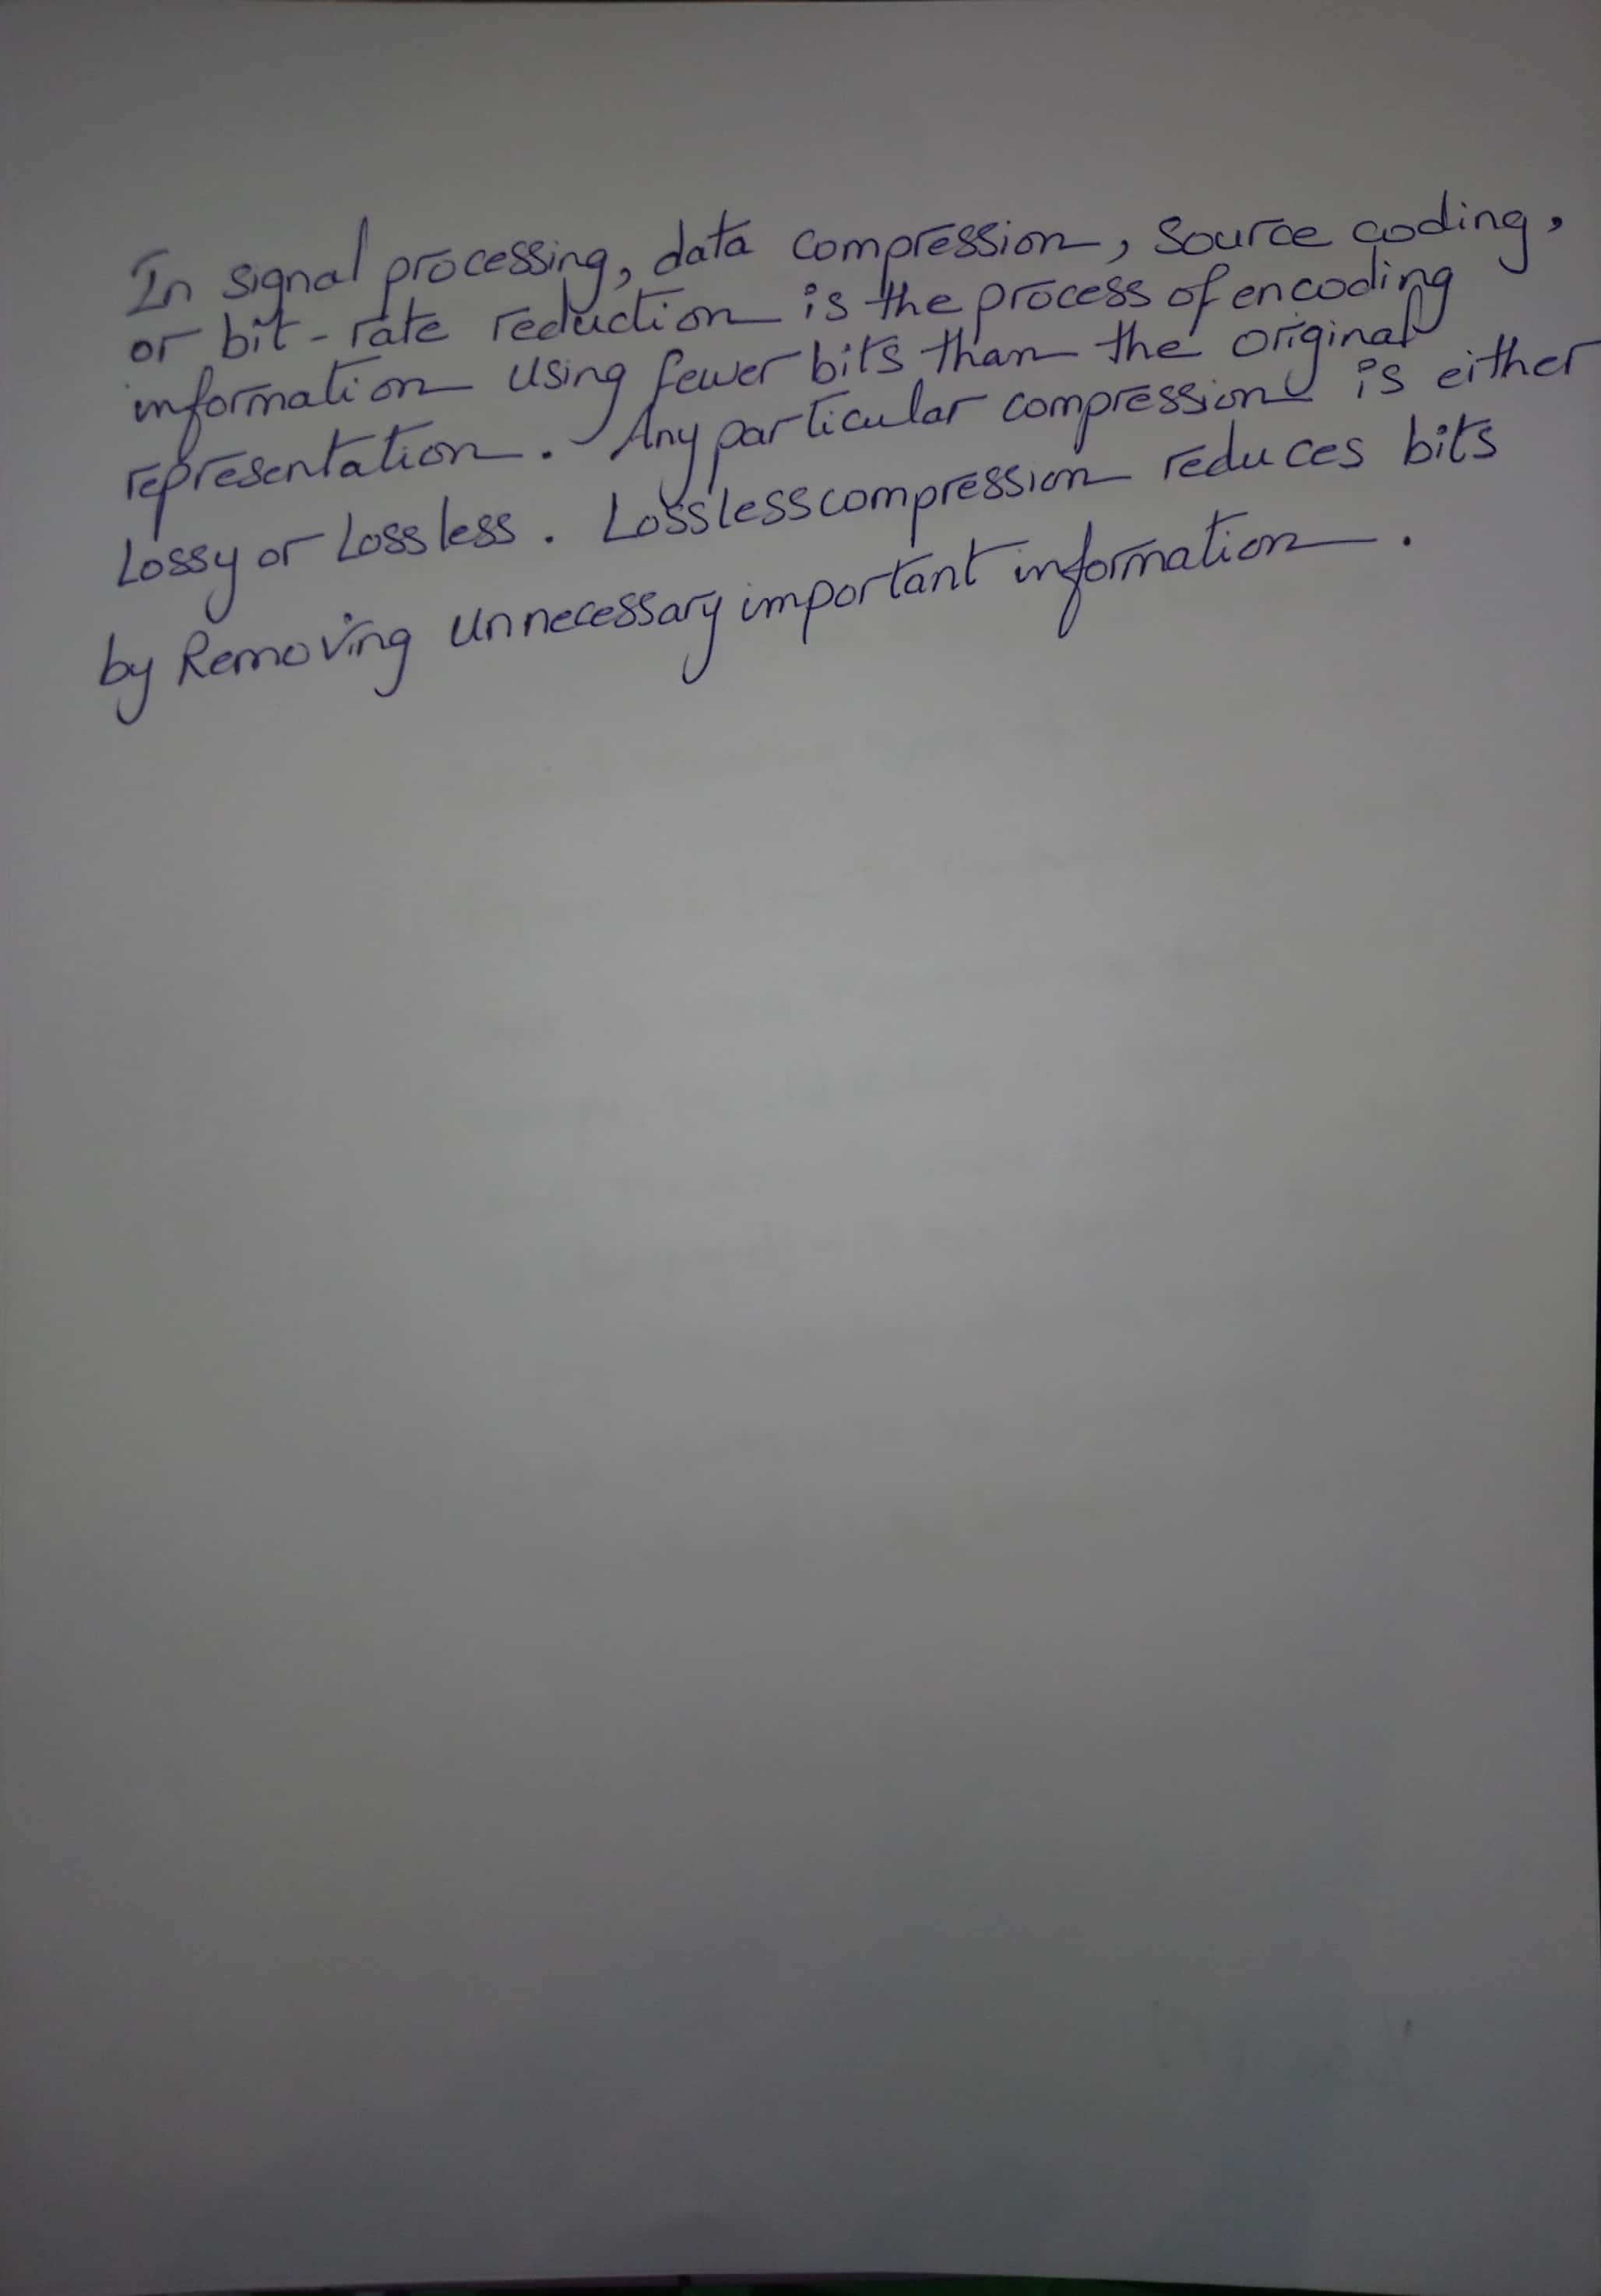 In signal processing, data compression, source coding,
or bit-rate reduction is the process of encoding
information using fewer bits than the original
representation. Any particular compression is either
Lossy or Lossless. Losslesscompression reduces bits
by Removing unnecessary important information.